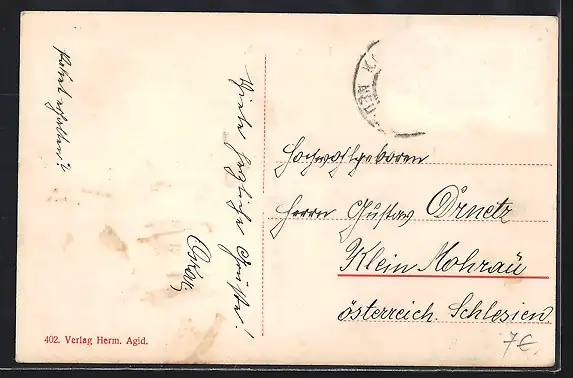 Paket erhalten?
Viele herzliche Grüsse!
Oskar.
Hochwohlgeboren
Herrn Gustav Drnetz
Klein Mohrau
österreich. Schlesien
402. Verlag Herm. Agid.
7€